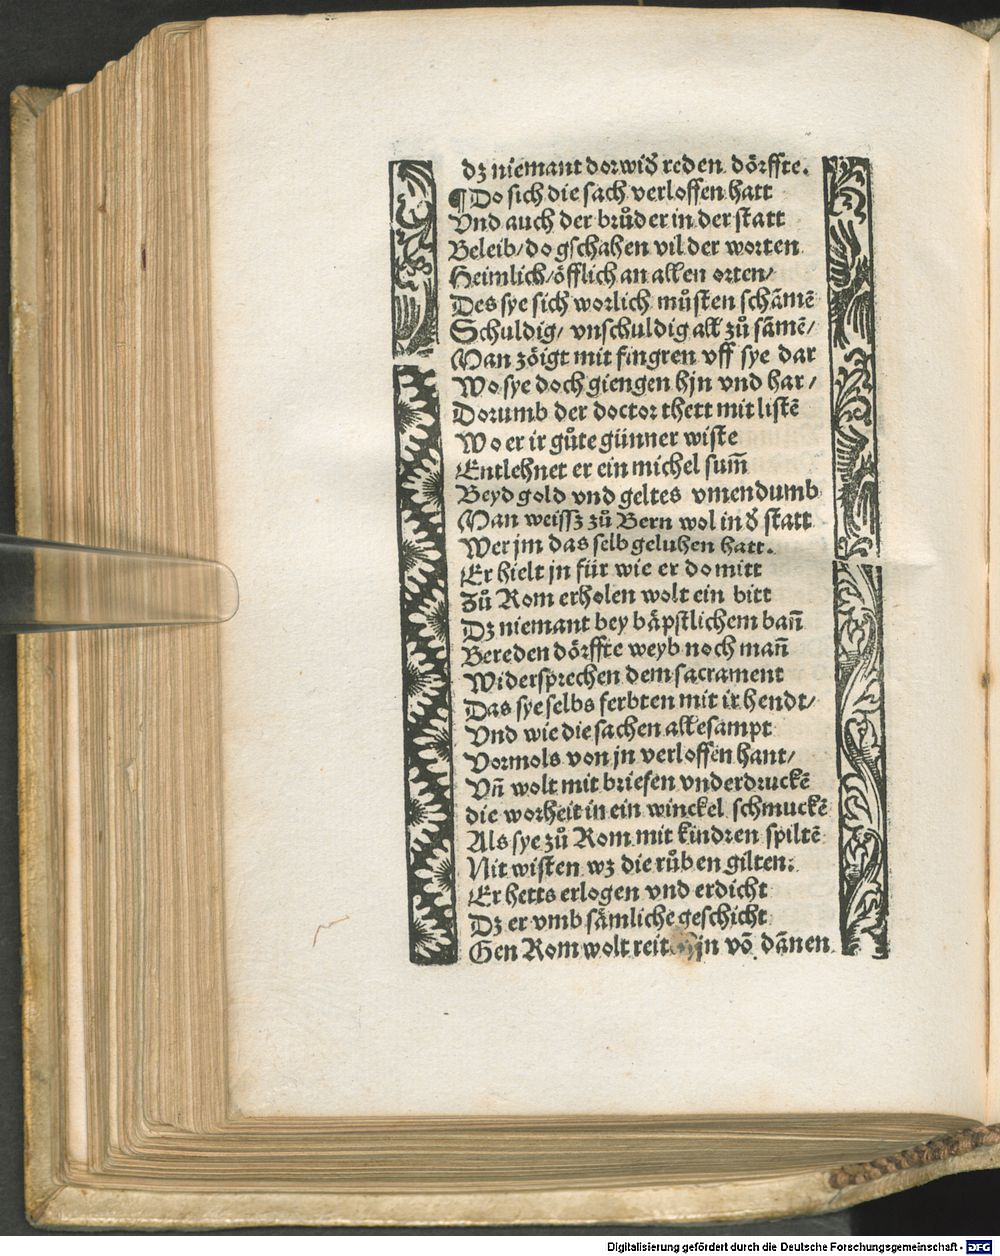 dz niemant dorwiď reden dörffte.
¶Do sich die sach verloffen hatt
Vnd auch der brůder in der statt
Beleib/ do gschahen vil der worten
Heimlich/öfflich an allen orten/
Des sye sich worlich můsten schāmē
Schuldig/ vnschuldig all zů sāmē/
Man zöigt mit fingren vff sye dar
Wo sye doch giengen hjn vnd har/
Dorumb der doctor thett mit listē
Wo er ir gůte günner wiste
Entlehnet er ein michel sum̄
Beyd gold vnd geltes vmendumb
Man weissz zů Bern wol in ď statt
Wer jm das selb geluhen hatt.
Er hielt jn für wie er domitt
Zů Rom erholen wolt ein bitt
Dz niemant bey bäpstlichem ban̄
Bereden dörffte weyb noch man̄
Widersprechen dem sacrament
Das sye selbs ferbten mit ir hendt/
Vnd wie die sachen allesampt
Vormols von jn verloffen hant/
Vn̄ wolt mit briefen vnderdruckē
die worheit in ein winckel schmuckē
Als sye zů Rom mit kindren spiltē
Nit wisten wz die růben gilten.
Er hetts erlogen vnd erdicht
Dz er vmb sämliche geschicht
Gen Rom wolt reit hjn vō dānen
Digitalisierung gefördert durch die Deutsche Forschungsgemeinschaft - DFG